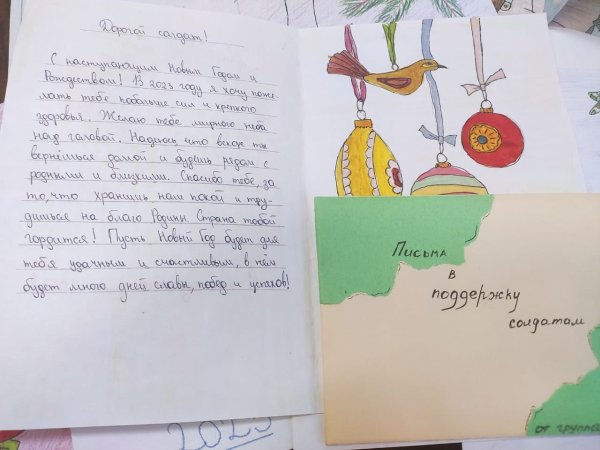 Дорогой солдат!
С наступающим Новым Годом и
Рождеством! В 2023 году я хочу поже-
лать тебе побольше сил и крепкого
здоровья. Желаю тебе мирного неба
над головой. Надеюсь что вскоре ты
вернёшься домой и будешь рядом с
родными и близкими. Спасибо тебе, за
то, что хранишь нам покой и тру-
дишься на благо Родины. Страна тобой
гордится! Пусть Новый Год будет для
тебя удачным и счастливым, в нём
будет много дней славы, побед и успехов!
Письма
в
поддержку
солдатам
от группы
2023